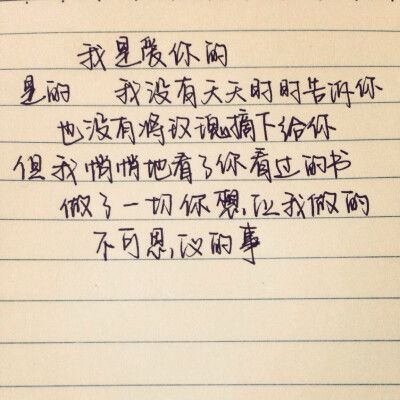 我是爱你的
是的 我没有天天时时告诉你
也没有将玫瑰摘下给你
但我悄悄地看了你看过的书
做了一切你想让我做的
不可思议的事